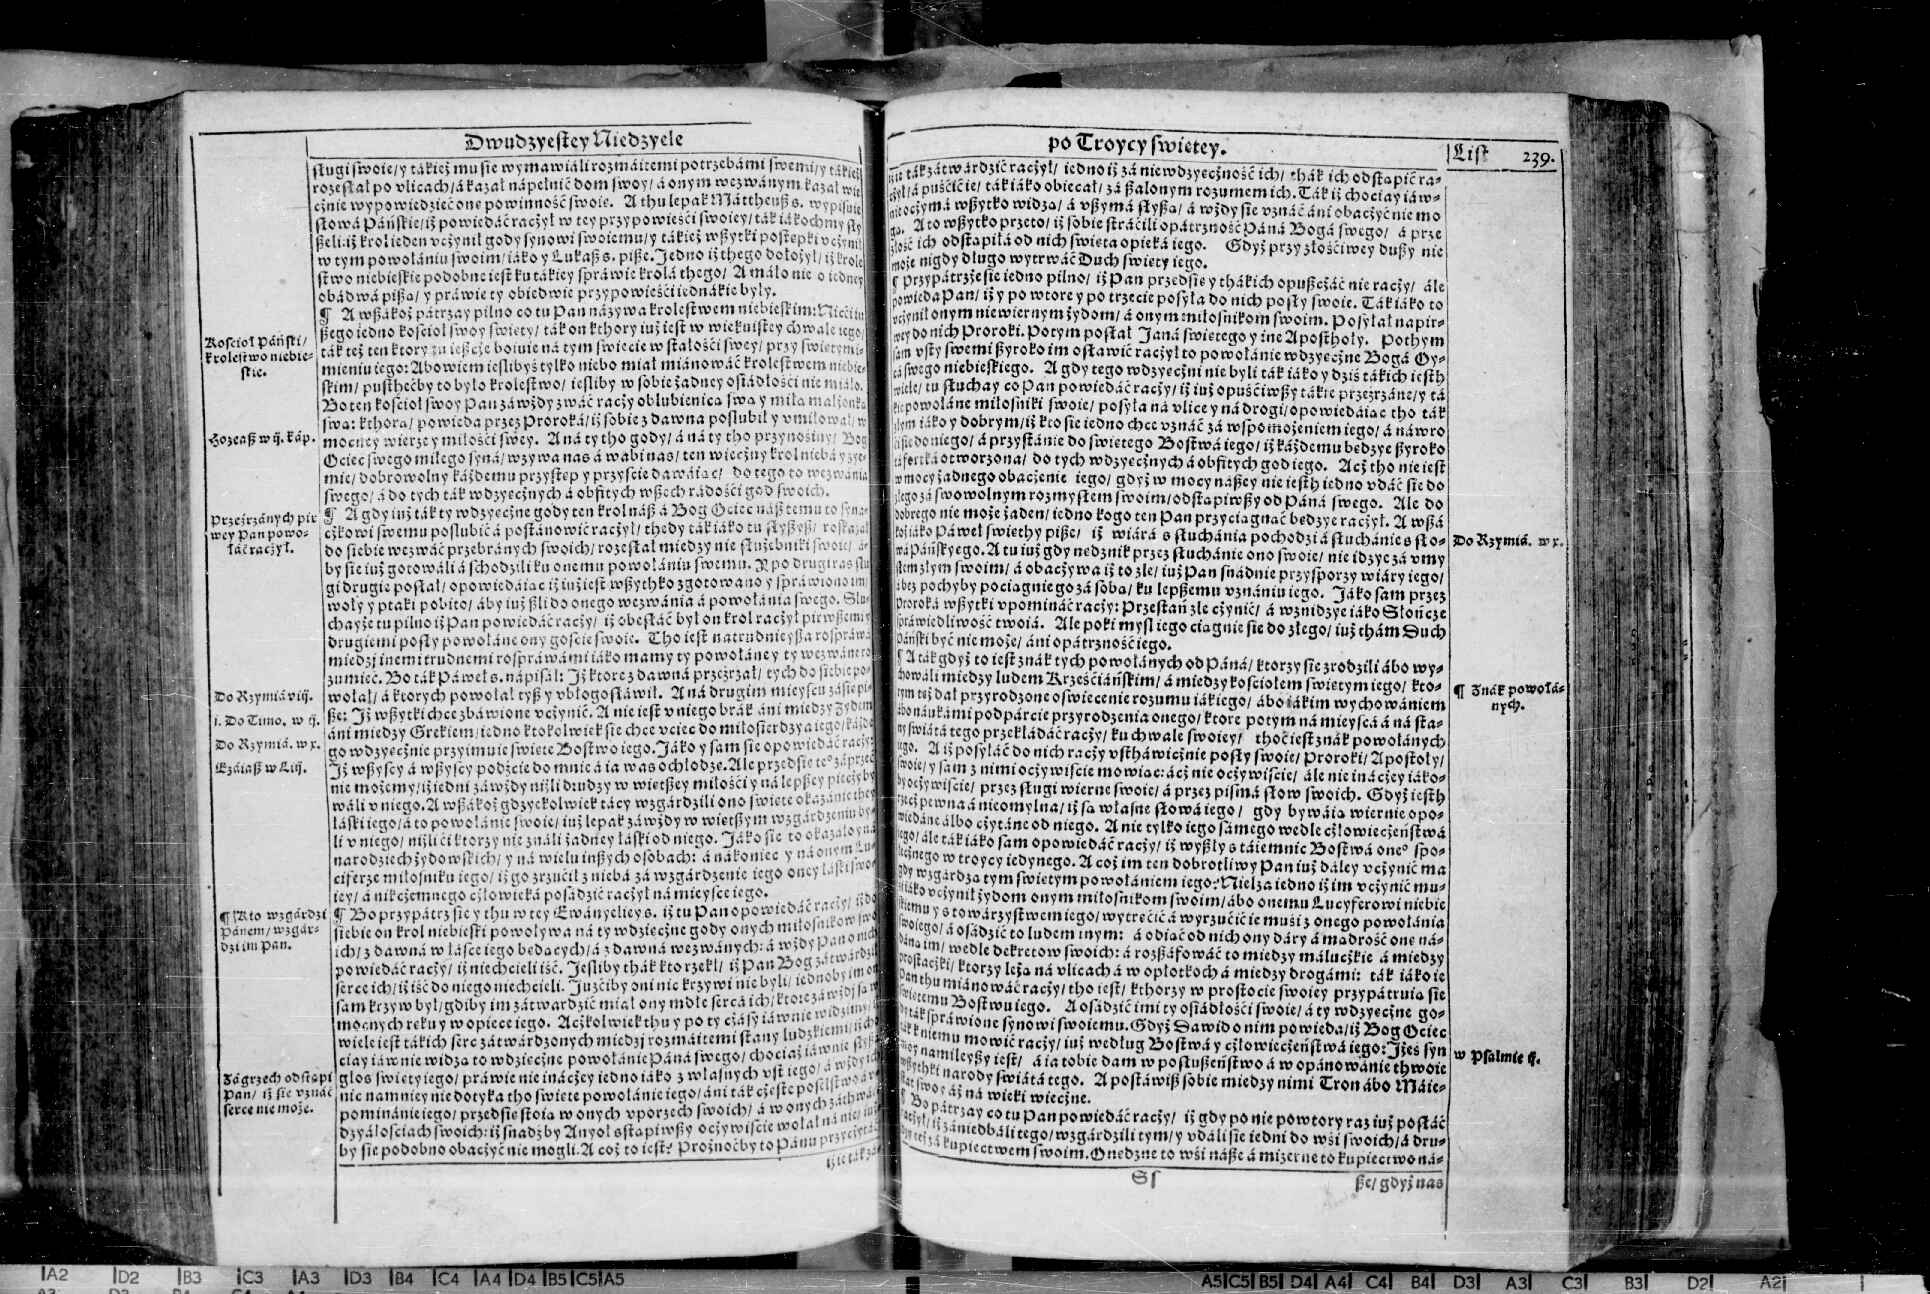 Dwudzyestey Niedzyele
sługi swoie/ y takież mu sie wymawiáli rozmáitemi potrzebámi swemi/ y tákież
rozesłał po vlicach/ á kazał nápełnić dom swoy/ á onym wezwánym kazał
cżnie wypowiedzieć one powinność swoie. A thu lepak Mattheuß s. wypisuie
słowá Páńskie/ iż powiedáć racżył w tey przypowieści swoiey/ ták iákochmy sły
ßeli: iż krol ieden vcżynił gody synowi swoiemu/ y tákież wßytki postepki vcżynił
w tym powołániu swoim/ iáko y Lukaß s. piße. Jedno iż thego dołożył/ iż krole
stwo niebieskie podobne iest ku tákiey spráwie krolá thego/ A máło nie o iedney
obádwá pißą/ y práwie ty obiedwie przypowieści iednákie były.
¶ A wßákoż pátrzay pilno co tu Pan názywa krolestwem niebieskim: Nicći in
ßego iedno kościoł swoy święty/ ták on kthory iuż iest w wiekuistey chwale iego/
ták też ten ktory tu ießcże boiuie ná tym świecie w stáłości swey/ przy świętym i-
mieniu iego: Abowiem ieslibyż tylko niebo miał miánowáć krolestwem niebie-
skim/ pusthećby to było krolestwo/ iesliby w sobie żadney osiádłości nie miáło.
Bo ten kościoł swoy Pan záwżdy zwáć racży oblubienicą swą y miłą małżonką
swą: kthorą/ powieda przez Proroká/ iż sobie z dawná poslubił y vmiłował/ w
mocney wierze y miłości swey. A ná ty tho gody/ á ná ty tho przynośiny/ Bog
Ociec swego miłego syná/ wzywa nas á wabi nas/ ten wiecżny krol niebá y zye-
mie/ dobrowolny káżdemu przystęp y przyście dawáiąc/ do tego to wezwánia
swego/ á do tych ták wdzyęcżnych á obfitych wßech rádości god swoich.
¶ A gdy iuż ták ty wdzyęcżne gody ten krol náß á Bog Ociec náß temu to syna-
cżkowi swemu poslubić á postánowić racżył/ thedy ták iáko tu słyßyß/ roskazał
do siebie wezwáć przebránych swoich/ rozesłał miedzy nie służebniki swoie/ á-
by sie iuż gotowáli á schodzili ku onemu powołániu swemu. Y po drugi ras słu
gi drugie posłał/ opowiedáiąc iż iuż iest wßythko zgotowano y spráwiono im/
woły y ptaki pobito/ áby iuż ßli do onego wezwánia á powołánia swego. Słu-
chayże tu pilno iż Pan powiedáć racży/ iż obesłáć był on krol racżył pirwßemi y
drugiemi posły powołáne ony goście swoie. Tho iest natrudnieyßa rospráwá
miedzj inemi trudnemi rospráwámi iáko mamy ty powołáne y ty wezwáne ro
zumieć. Bo ták Páweł s. nápisał: Iż ktore z dawná przeżrzał/ tych do siebie po-
wołał/ á ktorych powołał tyß y vbłogosłáwił. A ná drugim mieyscu zásie pi-
ße: Iż wßytki chce zbáwione vcżynić. A nie iest v niego brák áni miedzy Zydem
áni miedzy Grekiem/ iedno ktokolwiek sie chce vciec do miłosierdzya iego/ káżde
go wdzyęcżnie przyimuie święte Bostwo iego. Jáko y sam sie opowiedáć racży:
Iż wßyscy á wßyscy podźcie do mnie á ia was ochłodze. Ale przedsię te° záprzeć
nie możemy/ iż iedni záwżdy niżli drudzy w więtßey miłości y ná lepßey piecży by
wáli v niego. A wßákoż gdzyekolwiek tácy wzgárdzili ono święte okazánie they
łáski iego/ á to powołánie swoie/ iuż lepak záwżdy w więtßym wzgárdzeniu by-
li v niego/ niżli ći ktorzy nie ználi żadney łáski od niego. Jáko sie to okazáło y ná
narodziech żydowskich/ y ná wielu inßych osobach: á nákoniec y ná onym Lu-
ciferze miłosniku iego/ iż go zrzucił z niebá zá wzgárdzenie iego oney łáski swo-
iey/ á nikcżemnego cżłowieká posádzić racżył ná mieysce iego.
¶ Bo przypátrz sie y thu w tey Ewányeliey s. iż tu Pan opowiedáć racży/ iż do
siebie on krol niebieski powoływa ná ty wdzięcżne gody onych miłosnikow swo
ich/ z dawná w łásce iego będących/ á z dawná wezwánych: á wżdy Pan o nich
powiedáć racży/ iż niechcieli iść. Jesliby thák kto rzekł/ iż Pan Bog zátwárdził
serce ich/ iż iść do niego niechcieli. Jużciby oni nie krzywi nie byli/ iednoby im on
sam krzyw był/ gdiby im zátwardzić miał ony mdłe sercá ich/ ktore záwżdj są w
mocnych ręku y w opiece iego. Acżkolwiek thu y po ty cżásy iáwnie widzimy/
wiele iest tákich serc zátwárdzonych miedzj rozmáitemi stany ludzkiemi/ iż cho
ciay iáwnie widzą to wdzięcżne powołánie Páná swego/ chociaż iáwnie słyßą
głos święty iego/ práwie nie inácżey iedno iáko z własnych vst iego/ á wżdy ich
nic namniey nie dotyka tho święte powołánie iego/ áni ták cżęste poselstwo á v-
pominánie iego/ przedsię stoią w onych vporzech swoich/ á w onych zátwár-
dzyáłościach swoich: iż snadźby Anyoł sstąpiwßy ocżywiście wołał ná nie/ iużi
by sie podobno obacżyć nie mogli. A coż to iest? Prożnoćby to Pánu przycżytáć
iż ie ták zá-
Kościoł Páński/
krolestwo niebie-
skie.
Hozeaß w ij. káp.
Przeźrzánych pir
wey Pan powo-
łáć racżył.
Do Rzymiá viij.
i. Do Timo. w ij.
Do Rzymiá. w x.
Ezáiaß w Liij.
¶ Kto wzgárdzi
Pánem/ wzgár-
dzi im Pan.
Zá grzech odstąpi
Pan/ iż sie vznáć
serce nie może.
po Troycy świętey.
List 239.
ie ták zátwárdzić racżył/ iedno iż zá niewdzyęcżność ich/ thák ich odstąpić ra-
cżył/ á puścić ie/ ták iáko obiecał/ zá ßalonym rozumem ich. Ták iż chociay iáw-
nie ocżymá wßytko widzą/ á vßymá słyßą/ á wżdy sie vznáć áni obacżyć nie mo
gą. A to wßytko przeto/ iż sobie stráćili opátrzność Páná Bogá swego/ á prze
złość ich odstąpiłá od nich święta opieká iego. Gdyż przy złościwey dußy nie
może nigdy długo wytrwáć Duch święty iego.
¶ Przypátrzże sie iedno pilno/ iż Pan przedsię y thákich opußcżáć nie racży/ ále
powieda Pan/ iż y po wtore y po trzecie posyła do nich posły swoie. Ták iáko to
vcżynił onym niewiernym żydom/ á onym miłosnikom swoim. Posyłał napir-
wey do nich Proroki. Potym posłał Janá świętego y ine Aposthoły. Pothym
sam vsty swemi ßyroko im ostáwić racżył to powołánie wdzyęcżne Bogá Oy-
cá swego niebieskiego. A gdy tego wdzyęcżni nie byli ták iáko y dziś tákich iesth
wiele/ tu słuchay co Pan powiedáć racży/ iż iuż opuściwßy tákie przeżrzáne/ y tá
kie powołáne miłosniki swoie/ posyła ná vlice y ná drogi/ opowiedáiąc tho ták
złym iáko y dobrym/ iż kto sie iedno chce vznáć zá wspomożeniem iego/ á náwro
ći sie do niego/ á przystánie do świętego Bostwá iego/ iż káżdemu będzye ßyroko
tá fortká otworzona/ do tych wdzyęcżnych á obfitych god iego. Acż tho nie iest
w mocy żadnego obacżenie iego/ gdyż w mocy nászey nie iesth iedno vdáć sie do
złego zá swowolnym rozmysłem swoim/ odstąpiwßy od Páná swego. Ale do
dobrego nie może żaden/ iedno kogo ten Pan przyciągnąć będzye racżył. A wßá
koż iáko Páweł święthy piße/ iż wiárá s słuchánia pochodzi á słuchánie s sło-
wá Páńskyego. A tu iuż gdy nędznik przez słuchánie ono swoie/ nie idzye zá vmy
słem złym swoim/ á obacżywa iż to złe/ iuż Pan snádnie przysporzy wiáry iego/
á bez pochyby pociągnie go zá sobą/ ku lepßemu vznániu iego. Jáko sam przez
Proroká wßytki vpomináć racży: Przestań źle cżynić/ á wznidzye iáko Słońce
spráwiedliwość twoiá. Ale poki mysl iego ciągnie sie do złego/ iuż thám Duch
Páński być nie może/ áni opátrzność iego.
¶ A ták gdyż to iest znák tych powołánych od Páná/ ktorzy sie zrodzili ábo wy-
chowáli miedzy ludem Krześciáńskim/ á miedzy kościołem świętym iego/ kto-
rym też dał przyrodzone oświecenie rozumu iákiego/ ábo iákim wychowániem
ábo náukámi podpárcie przyrodzenia onego/ ktore potym ná mieyscá á ná sta-
ny świátá tego przekłádáć racży/ ku chwale swoiey/ thoć iest znák powołánych
iego. A iż posyłáć do nich racży vstháwicżnie posły swoie/ Proroki/ Apostoły/
swoie/ y sam z nimi ocżywiście mowiąc: ácż nie ocżywiście/ ále nie inácżey iáko-
by ocżywiście/ przez sługi wierne swoie/ á przez pismá słow swoich. Gdyż iesth
rzecż pewna á nieomylna/ iż są własne słowá iego/ gdy bywáią wiernie opo-
wiedáne álbo cżytáne od niego. A nie tylko iego sámego wedle cżłowiecżeństwá
iego/ ále ták iáko sam opowiedáć racży/ iż wyßły s táiemnic Bostwá one° spo-
łecżnego w troycy iedynego. A coż im ten dobrotliwy Pan iuż dáley vcżynić ma
gdy wzgárdzą tym świętym powołániem iego? Nielza iedno iż im vcżynić mu-
si iáko vcżynił żydom onym miłosnikom swoim/ ábo onemu Lucyferowi niebie
skiemu y s towárzystwem iego/ wytręcić á wyrzucić ie musi z onego powołánia
swoiego/ á osádzić to ludem inym: á odiąć od nich ony dáry á mądrość onę ná-
dáną im/ wedle dekretow swoich: á rozßáfowáć to miedzy málucżkie á miedzy
prostacżki/ ktorzy leżą ná vlicach á w opłotkoch á miedzy drogámi: ták iáko ie
Pan thu miánowáć racży/ tho iest/ kthorzy w prostocie swoiey przypátruią sie
świętemu Bostwu iego. A osádzić imi ty osiádłości swoie/ á ty wdzyęcżne go-
dy ták spráwione synowi swoiemu. Gdyż Dawid o nim powieda/ iż Bog Ociec
ták k niemu mowić racży/ iuż według Bostwá y cżłowiecżeństwá iego: Iżeś syn
moy namileyßy iest/ á ia tobie dam w posłußeństwo á w opánowánie thwoie
wßythki narody świátá tego. A postáwiß sobie miedzy nimi Tron ábo Máie-
stat swoy áż ná wieki wiecżne.
¶ Bo pátrzay co tu Pan powiedáć racży/ iż gdy po nie powtory raz iuż posłáć
racżył/ iż zániedbáli tego/ wzgárdzili tym/ y vdáli sie iedni do wśi swoich/ á dru-
dzy też zá kupiectwem swoim. O nędzne to wśi náße á mizerne to kupiectwo ná-
Ss
ße/ gdyż nas
Do Rzymiá. w x.
¶ Znák powołá-
nych.
w Psalmie ij.